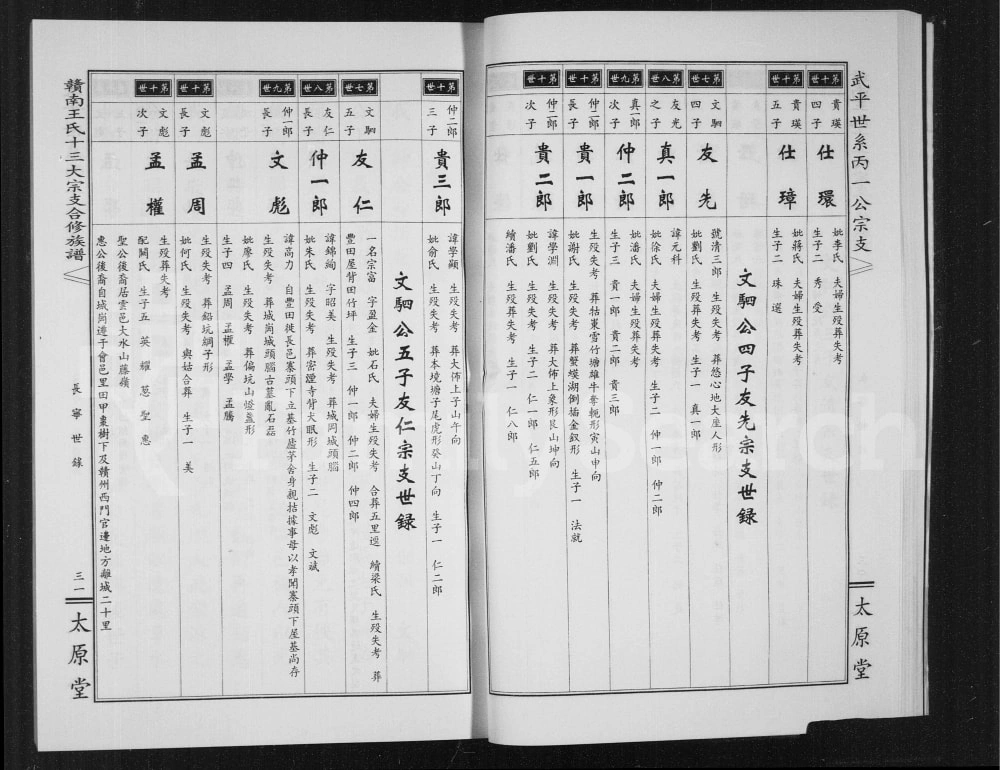 武平世系丙一公宗支
太原堂
第十世
貴瑛四子
仕環
妣李氏 夫婦生歿葬失考
生子二 秀 受
第十世
貴瑛五子
仕璋
妣蔣氏 夫婦生歿葬失考
生子二 珠 選
文駟公四子友先宗支世録
第七世
文駟四子
友先
號清三郎 生歿失考 葬悠心地大座人形
妣劉氏 生歿葬失考 生子一 真一郎
第八世
友光之子
真一郎
諱元科
妣徐氏 夫婦生歿葬失考 生子二 仲一郎 仲二郎
第九世
真一郎次子
仲二郎
妣潘氏 夫婦生歿葬失考
生子三 貴一郎 貴二郎 貴三郎
第十世
仲二郎長子
貴一郎
生歿失考 葬牯東雪竹塘雄牛奔軛形寅山申向
妣謝氏 生歿失考 葬蟹堫湖倒插金釵形 生子一 法就
第十世
仲二郎次子
貴二郎
諱學淵 生歿失考 葬大佈上象形艮山坤向
妣劉氏 生歿葬失考 生子二 仁一郎 仁五郎
續潘氏 生歿葬失考 生子一 仁八郎
第十世
仲二郎三子
貴三郎
諱學顯 生歿失考 葬大佈上子山午向
妣俞氏 生歿失考 葬本境塘子尾虎形癸山丁向 生子一 仁二郎
文駟公五子友仁宗支世録
第七世
文駟五子
友仁
一名宗富 字盈金 妣石氏 夫婦生歿失考 合葬五里逕 續梁氏 生歿失考 葬
豐田屋背田竹坪 生子三 仲一郎 仲二郎 仲四郎
第八世
友仁長子
仲一郎
諱錦絢 字昭美 生歿失考 葬城岡城頭腦
妣朱氏 生歿失考 葬密湮寺背犬眠形 生子二 文彪 文斌
第九世
仲一郎長子
文彪
諱高力 自豐田徙長邑寨頭下立基竹廬茅舍身親拮據事母以孝聞寨頭下屋基尚存
生歿失考 葬城崗城頭腦古墓亂石磊
妣廖氏 生歿失考 葬偏坑山燈盞形
生子四 孟周 孟權 孟學 孟騰
第十世
文彪長子
孟周
生歿失考 葬鉛坑綱子形
妣何氏 生歿失考 與姑合葬 生子一 美
第十世
文彪次子
孟權
生歿葬失考
配闕氏 生子五 英 耀 葱 聖 惠
聖公後裔居雲邑大水山藤嶺
惠公後裔自城崗遷于會邑里田甲棗樹下及贛州西門官邊地方離城二十里
贛南王氏十三大宗支合修族譜
長寧世錄
三一
太原堂